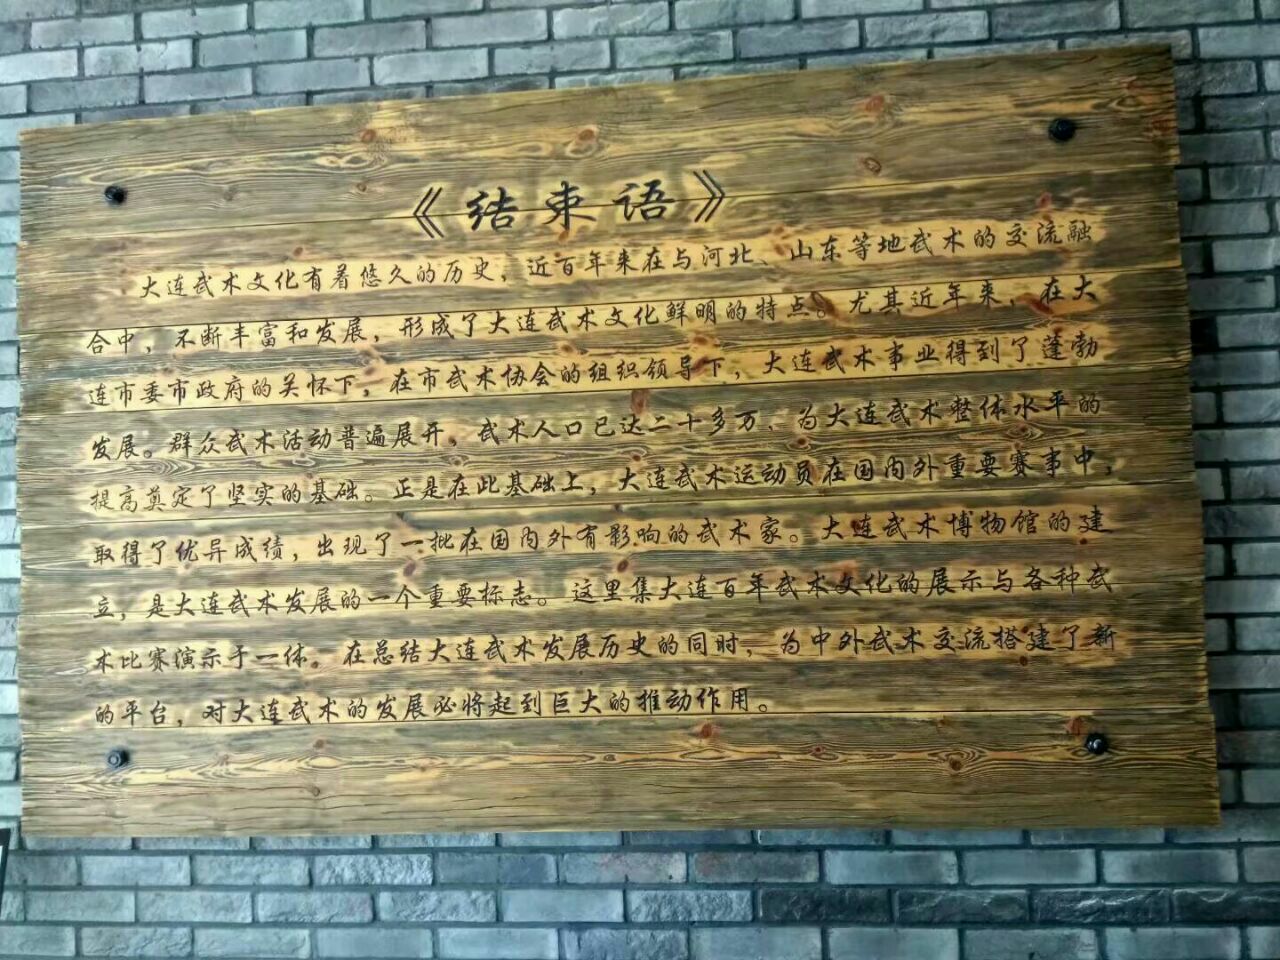 《结束语》
大连武术文化有着悠久的历史，近百年来在与河北、山东等地武术的交流融
合中，不断丰富和发展，形成了大连武术文化鲜明的特点。尤其近年来，在大
连市委市政府的关怀下，在市武术协会的组织领导下，大连武术事业得到了蓬勃
发展。群众武术活动普遍展开，武术人口已达二十多万，为大连武术整体水平的
提高奠定了坚实的基础。正是在此基础上，大连武术运动员在国内外重要赛事中，
取得了优异成绩，出现了一批在国内外有影响的武术家。大连武术博物馆的建
立，是大连武术发展的一个重要标志。这里集大连百年武术文化的展示与各种武
术比赛演示于一体。在总结大连武术发展历史的同时，为中外武术交流搭建了新
的平台，对大连武术的发展必将起到巨大的推动作用。